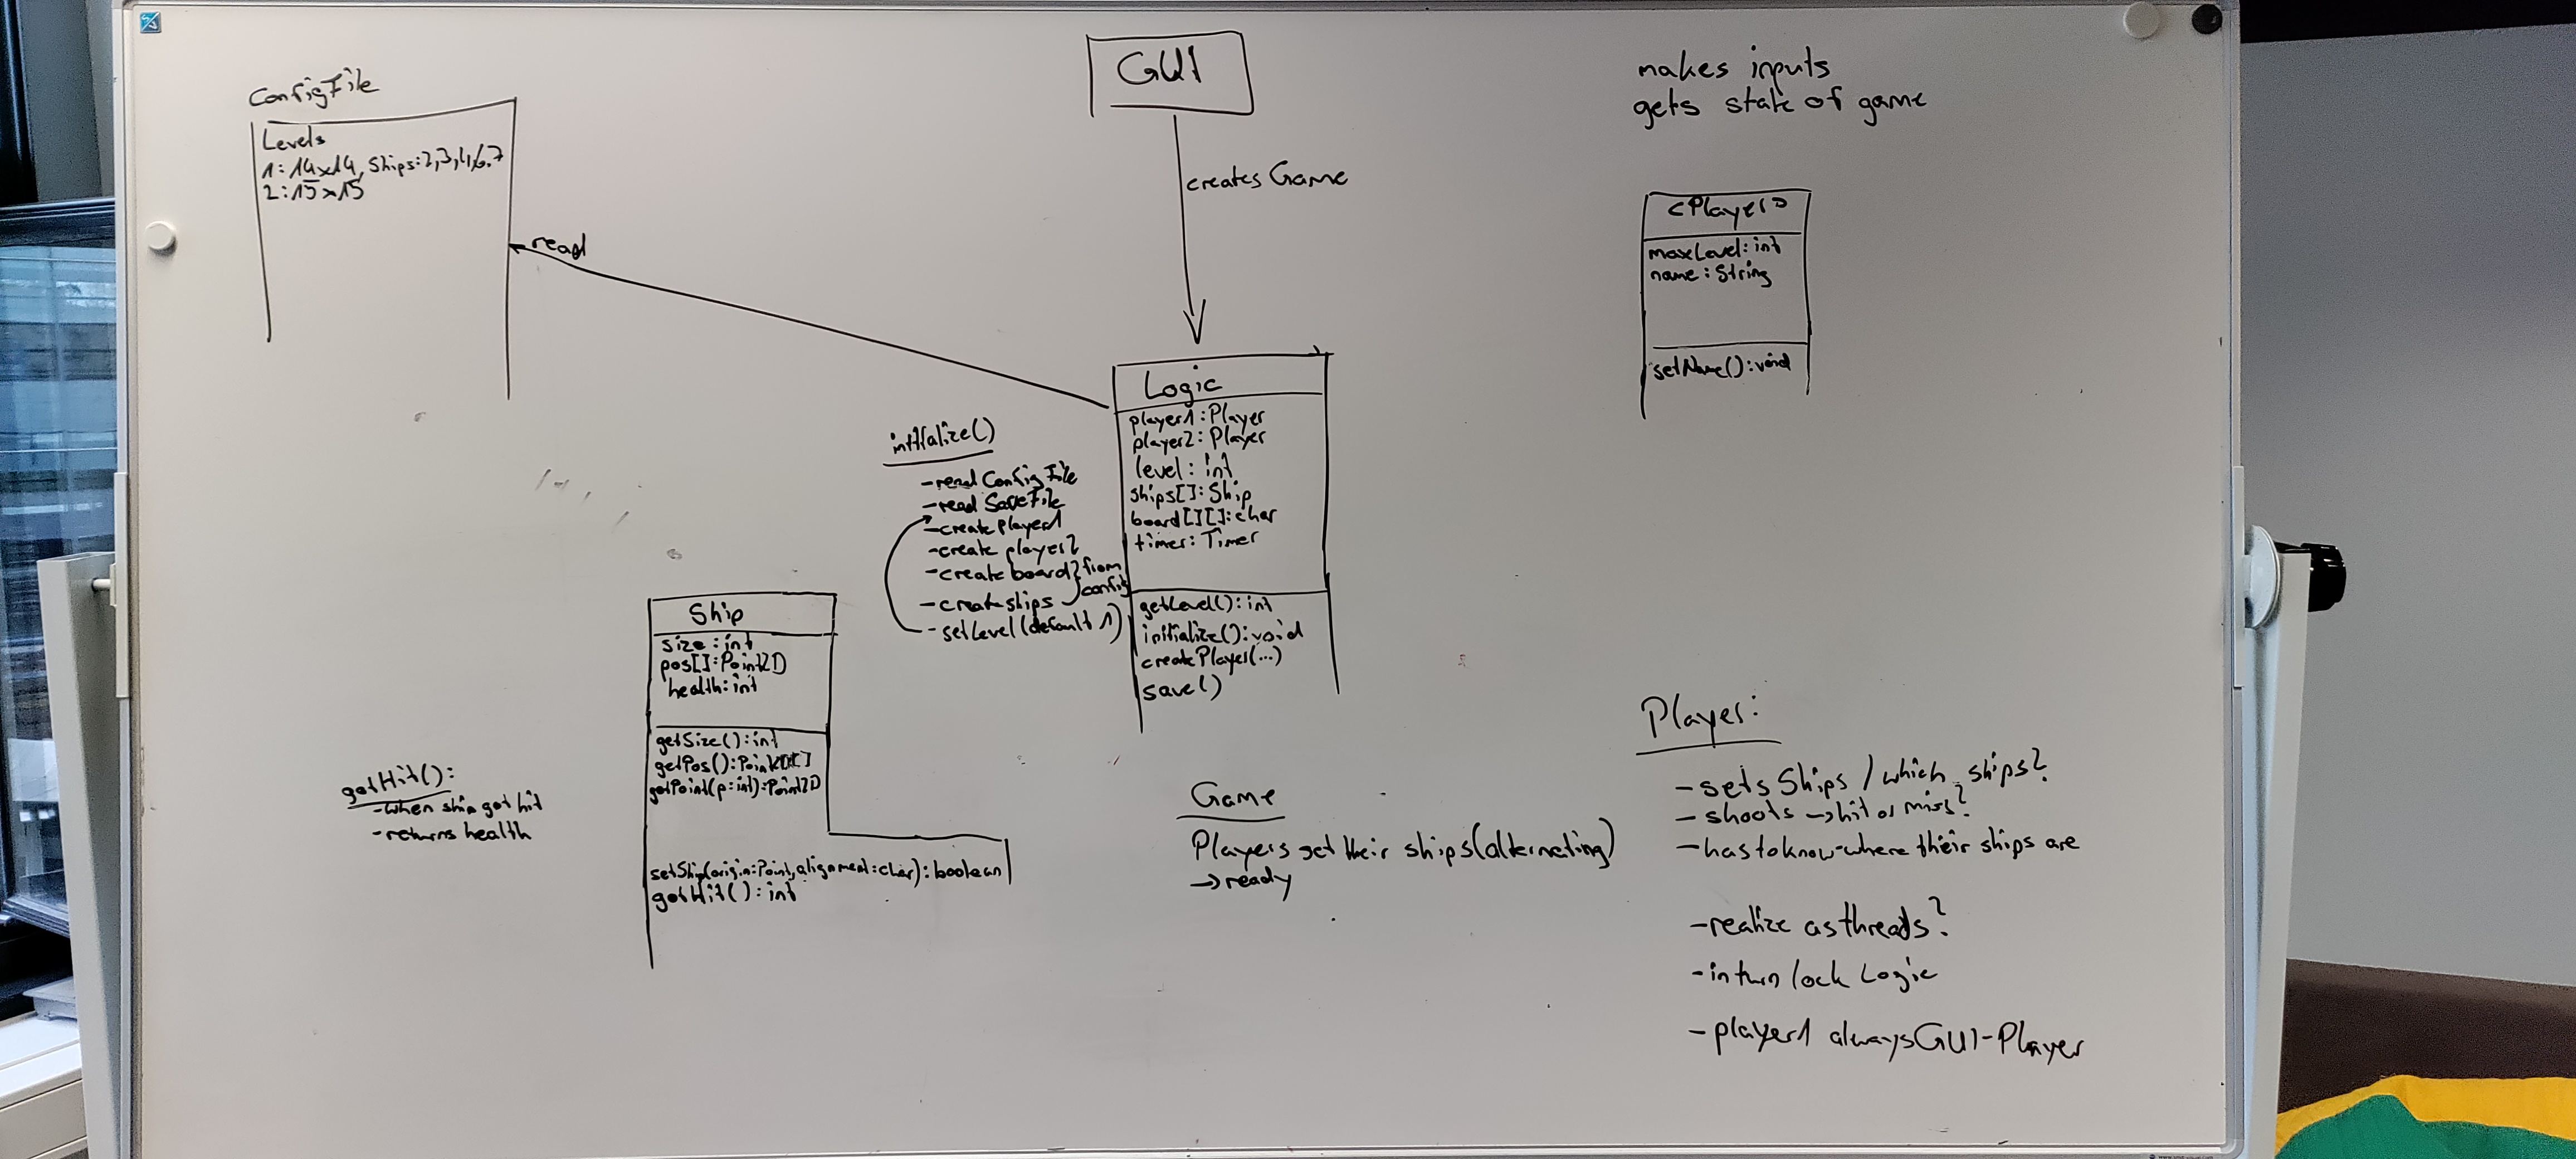 ConfigFile
Levels
1:14x14, Ships:2,3,4,6,7
2:15x15
read
GUI
creates Game
makes inputs
gets state of game
<Player>
maxLevel: int
name: String
setName(): void
Logic
player1: Player
player2: Player
level: int
ships[]: Ship
board[][]: char
timer: Timer
getLevel(): int
initialize(): void
createPlayer(...)
save()
initialize()
- read ConfigFile
- read SaveFile
- create player1
- create player2
- create board } from
- create ships } config
- setLevel (default 1)
Ship
size: int
pos[]: Point2D
health: int
getSize(): int
getPos(): Point2D[]
getPoint(p:int): Point2D
setShip(origin:Point, alignment:char): boolean
gotHit(): int
gotHit():
- when ship got hit
- returns health
Game
Players set their ships (alternating)
→ ready
Player:
- sets Ships / which ships?
- shoots → hit or miss?
- has to know where their ships are
- realize as threads?
- in turn lock Logic
- player1 always GUI-Player